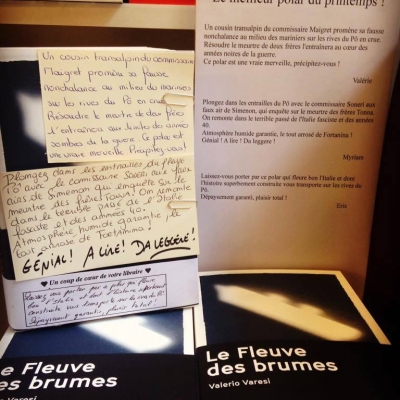 Le meilleur polar du printemps !
Un cousin transalpin du commissaire Maigret promène sa fausse
nonchalance au milieu des mariniers sur les rives du Pô en crue.
Résoudre le meurtre de deux frères l'entraînera au cœur des
années noires de la guerre.
Ce polar est une vraie merveille, précipitez-vous !
Valérie
Plongez dans les entrailles du Pô avec le commissaire Soneri aux
faux air de Simenon, qui enquête sur le meurtre des frères Tonna.
On remonte dans le terrible passé de l'Italie fasciste et des années
40.
Atmosphère humide garantie, le tout arrosé de Fortanina !
Génial ! A lire ! Da leggere !
Myriam
Laissez-vous porter par ce polar qui fleure bon l'Italie et dont
l'histoire superbement construite vous transporte sur les rives du
Pô.
Dépaysement garanti, plaisir total !
Eric
Un cousin transalpin du commissaire
Maigret promène sa fausse
nonchalance au milieu des mariniers
sur les rives du Pô en crue
Résoudre le meurtre de deux frères
l'entraînera au
sombres de la guerre. Ce polar est
une vraie merveille. Précipitez-vous !
Plongez dans les entrailles du
Pô avec le commissaire Soneri aux faux
airs de Simenon qui enquête sur le
meurtre des frères Tonna. On remonte
dans le terrible passé de l'Italie
fasciste et des années 40.
Atmosphère humide garantie, le
tout arrosé de Fortanina !
GÉNIAL! A LIRE! DA LEGGERE!
Un coup de cœur de votre libraire
Laissez vous porter par ce polar qui fleure
bon l'Italie et dont l'histoire superbement
construite vous transporte sur les rives du Pô.
Dépaysement garanti, plaisir total!
Le Fleuve
des brumes
Valerio Varesi
Le Fleuve
des brumes
Valerio Varesi